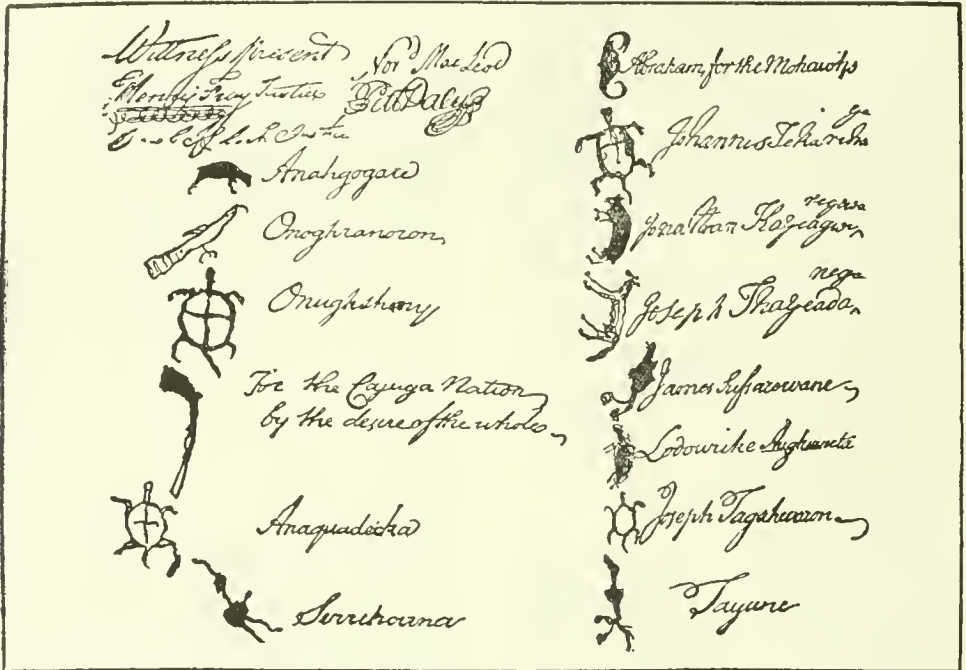 Wittness present
Henry Fray Justice
Nor^d Mac Leod
Pitt Daly
Anahgogare
Onoghranoron,
Onughshony
For the Cajuga Nation,
by the desire of the whole,
Anaquadecka
Serrehoana
Abraham, for the Mohawks
Johannes Tekarihoga
Jonathan Kayeagwi, regowa
Joseph Thayeada, nega
James Sussarowane,
Lodowike
Joseph Tagahwaron,
Tayune